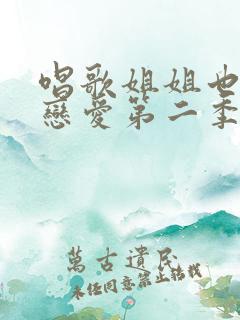 唱歌姐姐也
戀愛第二季
萬古遺民
未經同意禁止轉載